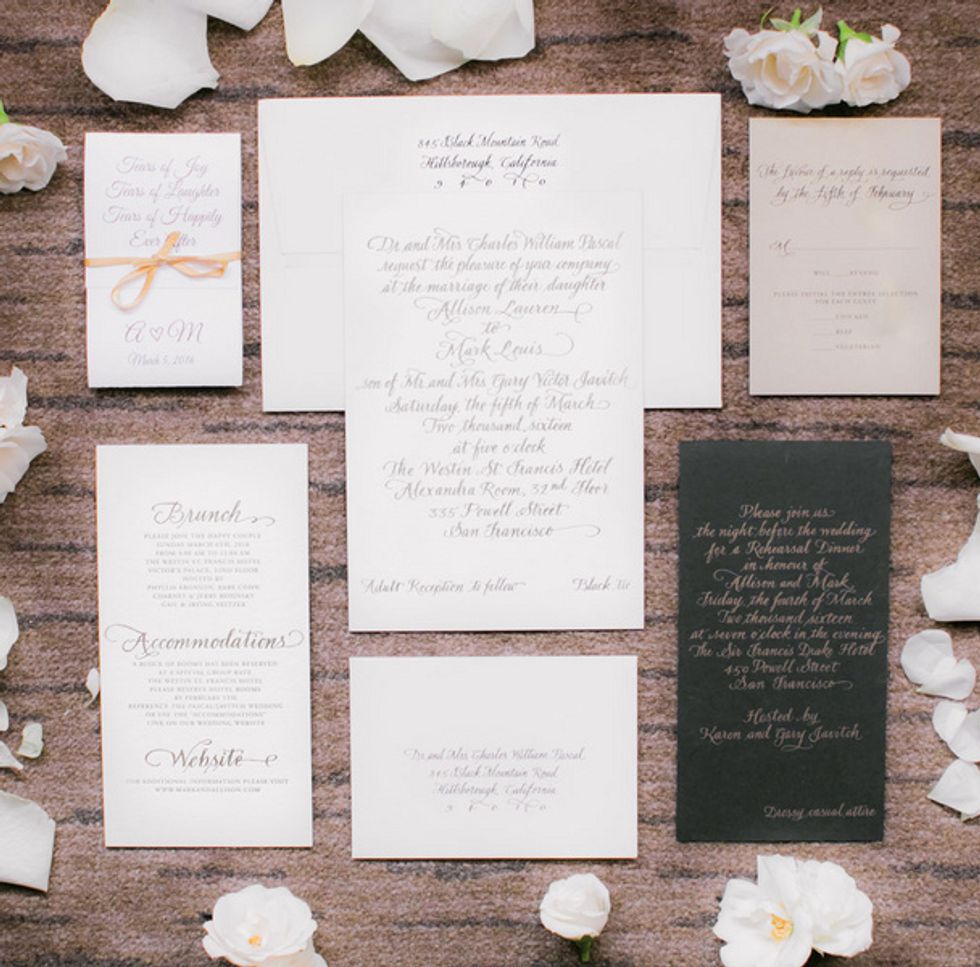 Tears of Joy
Tears of Laughter
Tears of Happily
Ever After
A ♡ M
March 5, 2016
845 Black Mountain Road
Hillsborough, California
9 4 0 1 0
Dr. and Mrs. Charles William Pascal
request the pleasure of your company
at the marriage of their daughter
Allison Lauren
to
Mark Louis
son of Mr. and Mrs. Gary Victor Javitch
Saturday, the fifth of March
Two thousand, sixteen
at five o'clock
The Westin St. Francis Hotel
Alexandra Room, 32nd Floor
335 Powell Street
San Francisco
Adult Reception to follow
Black tie
The favour of a reply is requested
by the Fifth of February
M
WILL ATTEND
PLEASE INITIAL THE ENTRÉE SELECTION
FOR EACH GUEST
CHICKEN
BEEF
VEGETARIAN
Brunch
PLEASE JOIN THE HAPPY COUPLE
SUNDAY MARCH 6TH, 2016
FROM 9:00 AM TO 11:00 AM
THE WESTIN ST. FRANCIS HOTEL
VICTOR'S PALACE, 32ND FLOOR
HOSTED BY
PHYLLIS ARONSON, BABE COHN
CHARNEY & JERRY
GAIL & IRVING SELTZER
Accommodations
A BLOCK OF ROOMS HAS BEEN RESERVED
AT A SPECIAL GROUP RATE
THE WESTIN ST. FRANCIS HOTEL
PLEASE RESERVE HOTEL ROOMS
BY FEBRUARY 5TH
REFERENCE THE PASCAL/JAVITCH WEDDING
OR USE THE "ACCOMMODATIONS"
LINK ON OUR WEDDING WEBSITE
Website
FOR ADDITIONAL INFORMATION PLEASE VISIT
WWW.MARKANDALLISON.COM
Dr. and Mrs. Charles William Pascal
845 Black Mountain Road
Hillsborough, California
9 4 0 1 0
Please join us
the night before the wedding
for a Rehearsal Dinner
in honour of
Allison and Mark
Friday, the fourth of March
Two thousand sixteen
at seven o'clock in the evening
The Sir Francis Drake Hotel
450 Powell Street
San Francisco
Hosted by
Karon and Gary Javitch
Dressy casual attire